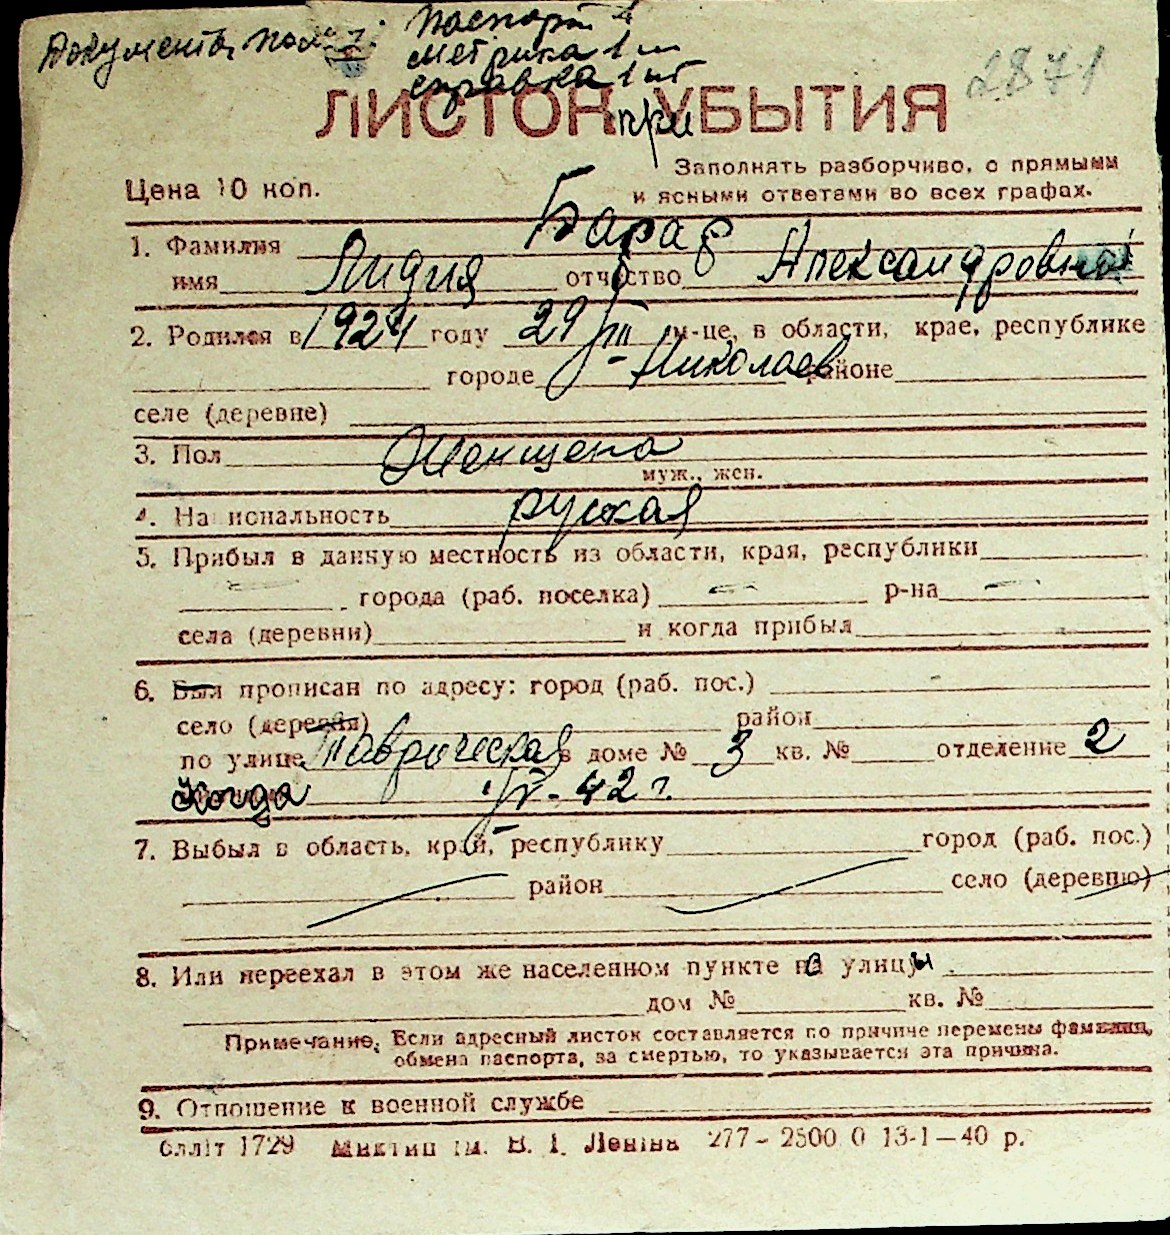 Документы Паспорт 1
метрика 1 ш
справка 1 шт
2871
ЛИСТОК УБЫТИЯ
при
Заполнять разборчиво, с прямыми
Цена 10 коп. и ясными ответами во всех графах.
Бараб
1. Фамилия
имя Лидия отчество Александровна
2. Родился в 1924 году 29/III м-це, в области, крае, республике
городе Николаев районе
селе (деревне)
3. Пол Женщена
муж., жен.
4. На иональность руская
5. Прибыл в данную местность из области, края, республики
города (раб. поселка) р-на
села (деревни) и когда прибыл
6. Был прописан по адресу: город (раб. пос.)
село (деревня) район
по улице Таврическая в доме № 3 кв. № отделение 2
Когда 42 г.
7. Выбыл в область, край, республику город (раб. пос.)
район село (деревню)
8. Или переехал в этом же населенном пункте на улицы
дом № кв. №
Примечание. Если адресный листок составляется по причине перемены фамилии,
обмена паспорта, за смертью, то указывается эта причина.
9. Отношение к военной службе
Оллiт 1729 Миктип iм. В. I. Ленiна 277 - 2500 0 13-1-40 р.